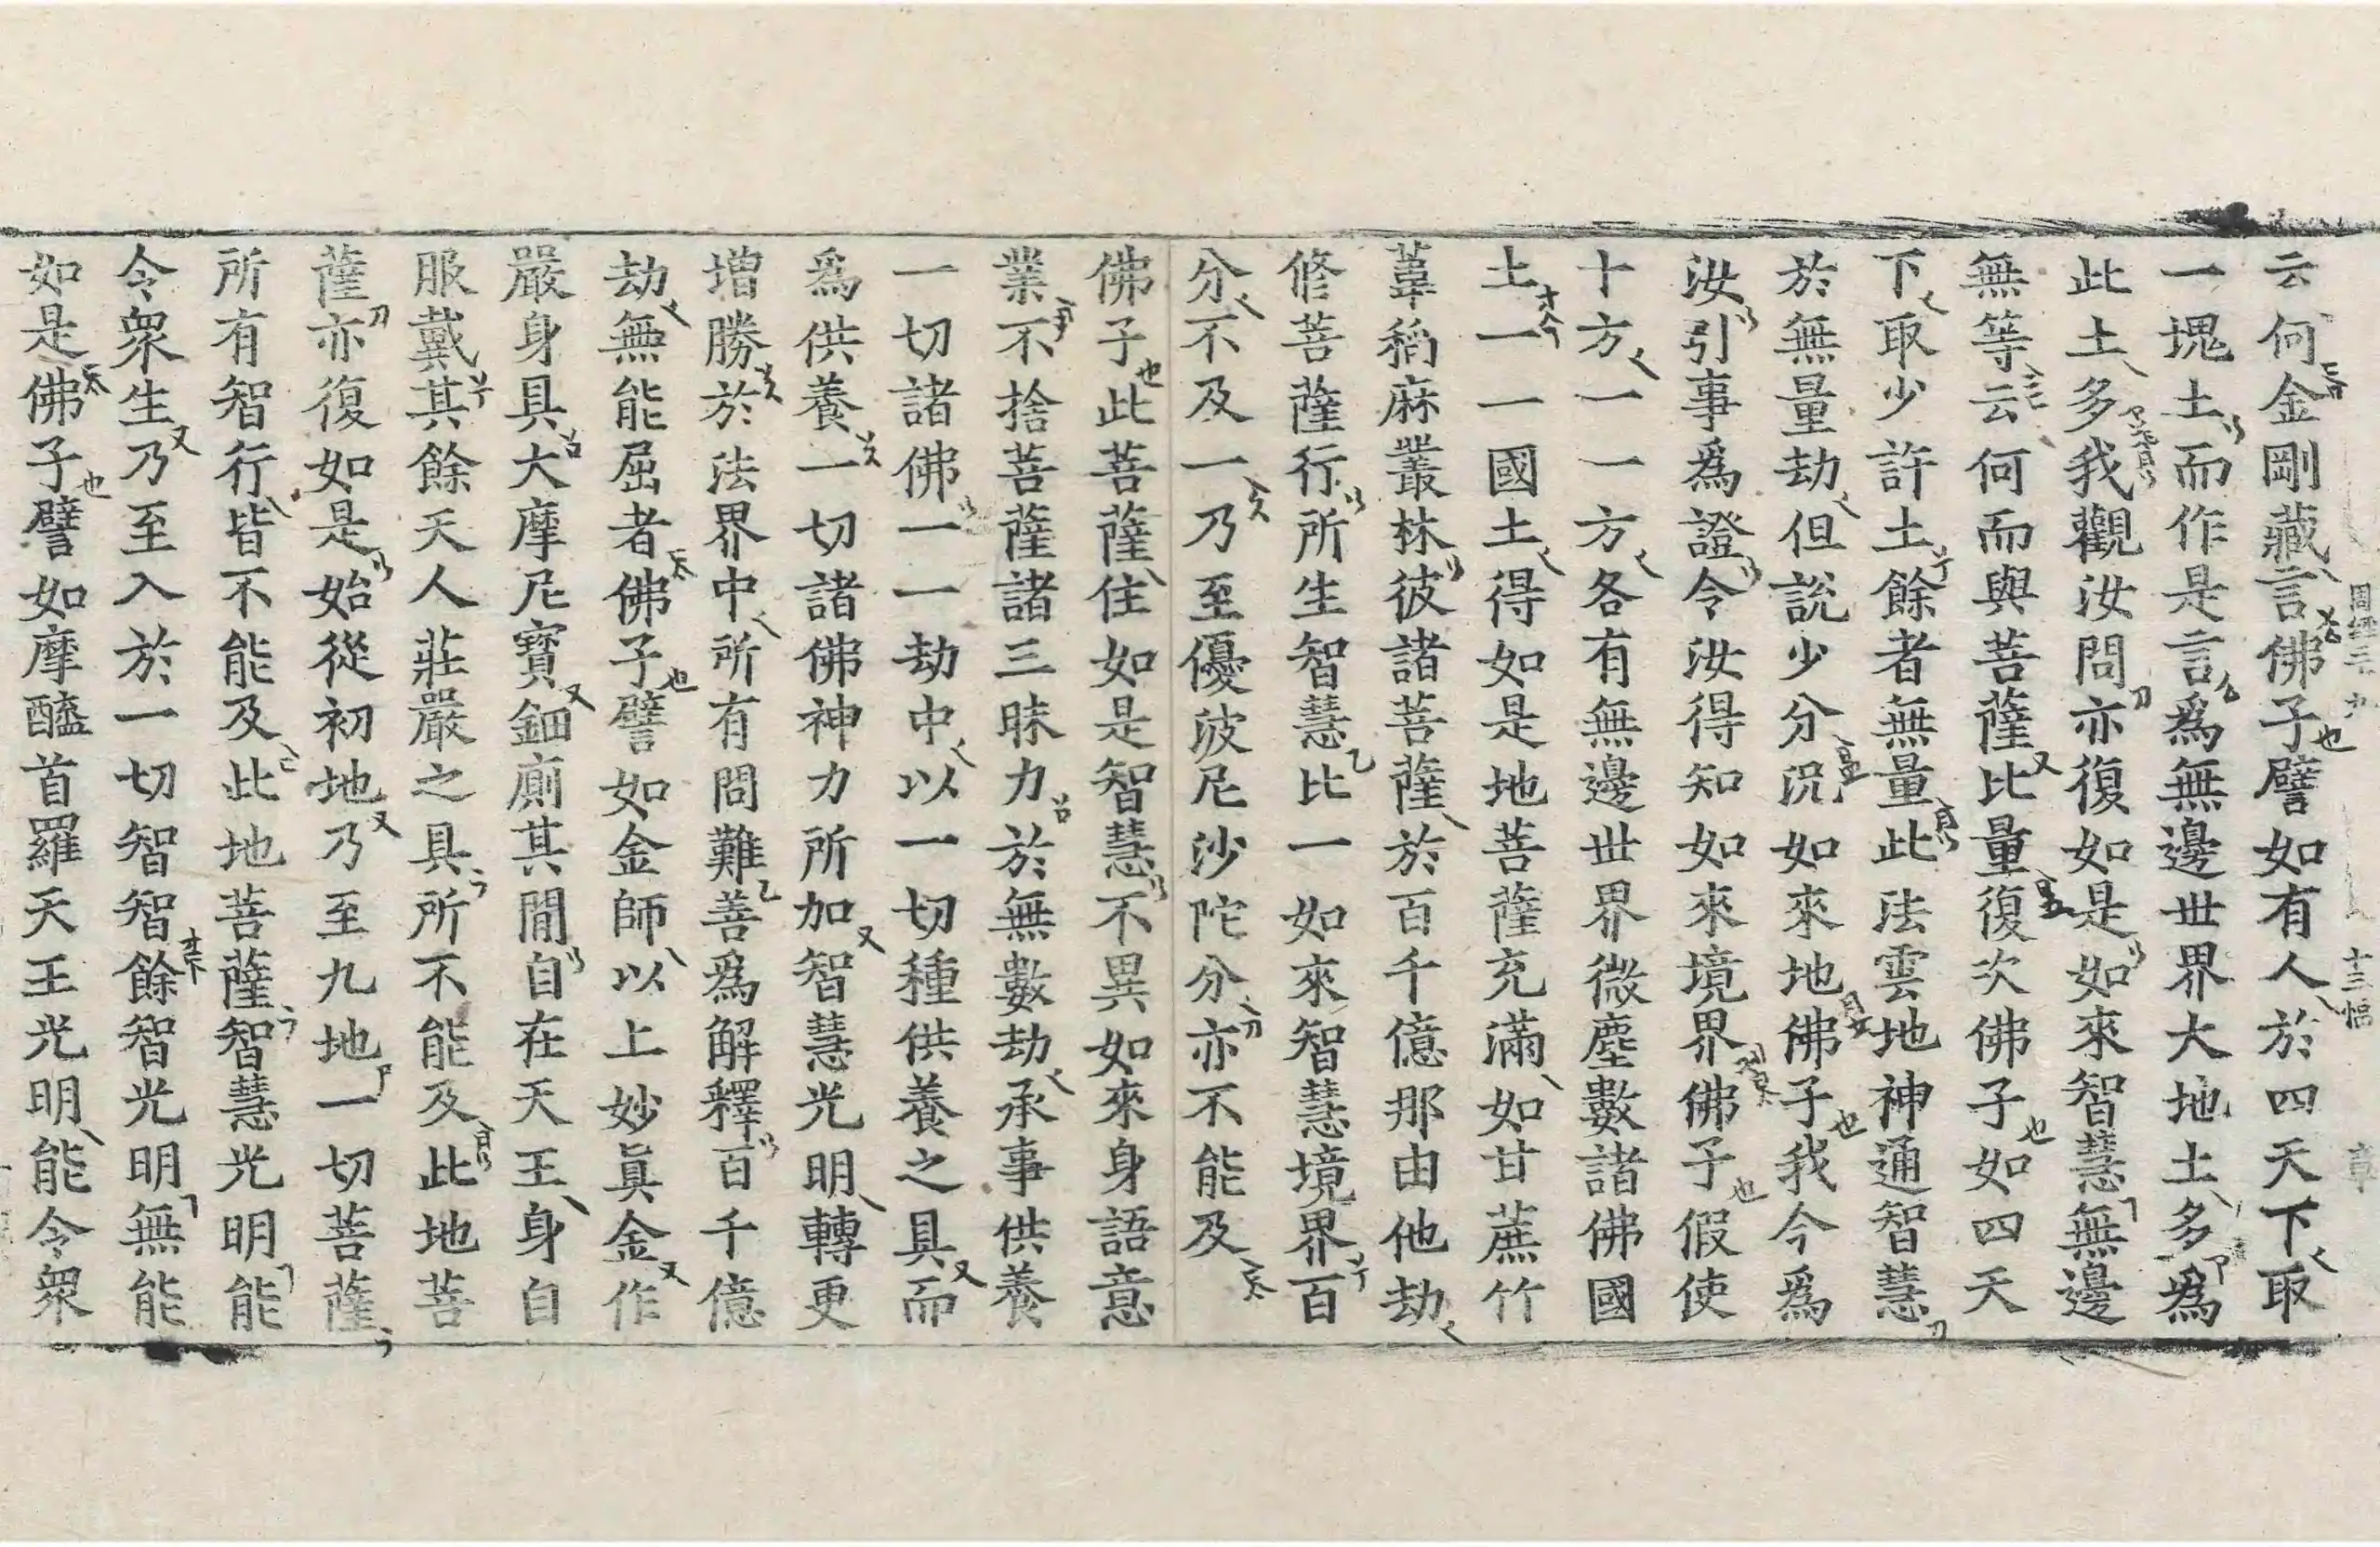 云何金剛藏言佛子譬如有人於四天下取
一塊土而作是言爲無邊世界大地土多爲
此土多我觀汝問亦復如是如來智慧無邊
無等云何而與菩薩比量復次佛子如四天
下取少許土餘者無量此法雲地神通智慧
於無量劫但說少分況如來地佛子我今爲
汝引事爲證令汝得知如來境界佛子假使
十方一一方各有無邊世界微塵數諸佛國
土一一國土得如是地菩薩充滿如甘蔗竹
葦稻麻叢林彼諸菩薩於百千億那由他劫
修菩薩行所生智慧比一如來智慧境界百
分不及一乃至優波尼沙陀分亦不能及
佛子此菩薩住如是智慧不異如來身語意
業不捨菩薩諸三昧力於無數劫承事供養
一切諸佛一一劫中以一切種供養之具而
爲供養一切諸佛神力所加智慧光明轉更
增勝於法界中所有問難善爲解釋百千億
劫無能屈者佛子譬如金師以上妙眞金作
嚴身具大摩尼寶鈿廁其間自在天王身自
服戴其餘天人莊嚴之具所不能及此地菩
薩亦復如是始從初地乃至九地一切菩薩
所有智行皆不能及此地菩薩智慧光明能
令衆生乃至入於一切智智餘智光明無能
如是佛子譬如摩醯首羅天王光明能令衆